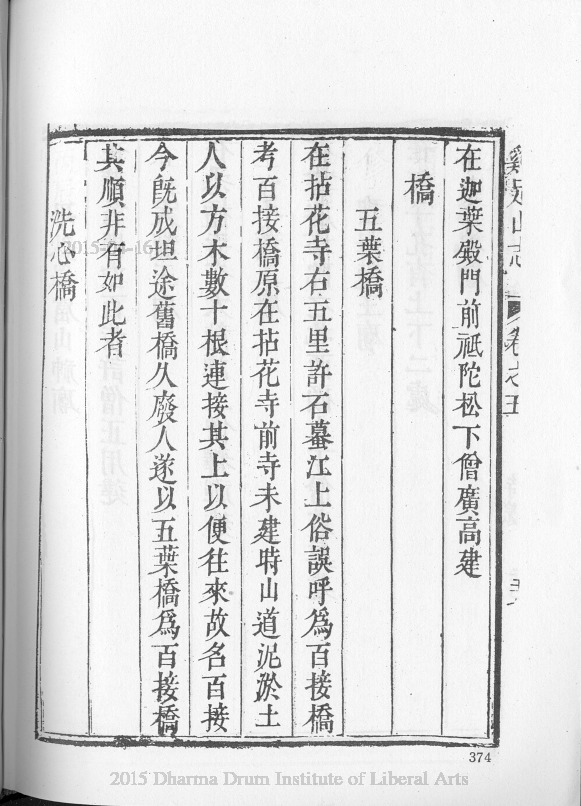 雞足山志 卷之五
在迦葉殿門前祗陀松下僧廣高建
橋
五葉橋
在拈花寺右五里許石蟇江上俗誤呼爲百接橋
考百接橋原在拈花寺前寺未建時山道泥淤土
人以方木數十根連接其上以便往來故名百接
今旣成坦途舊橋久廢人遂以五葉橋爲百接橋
其順非有如此者
洗心橋
374
2015 Dharma Drum Institute of Liberal Arts